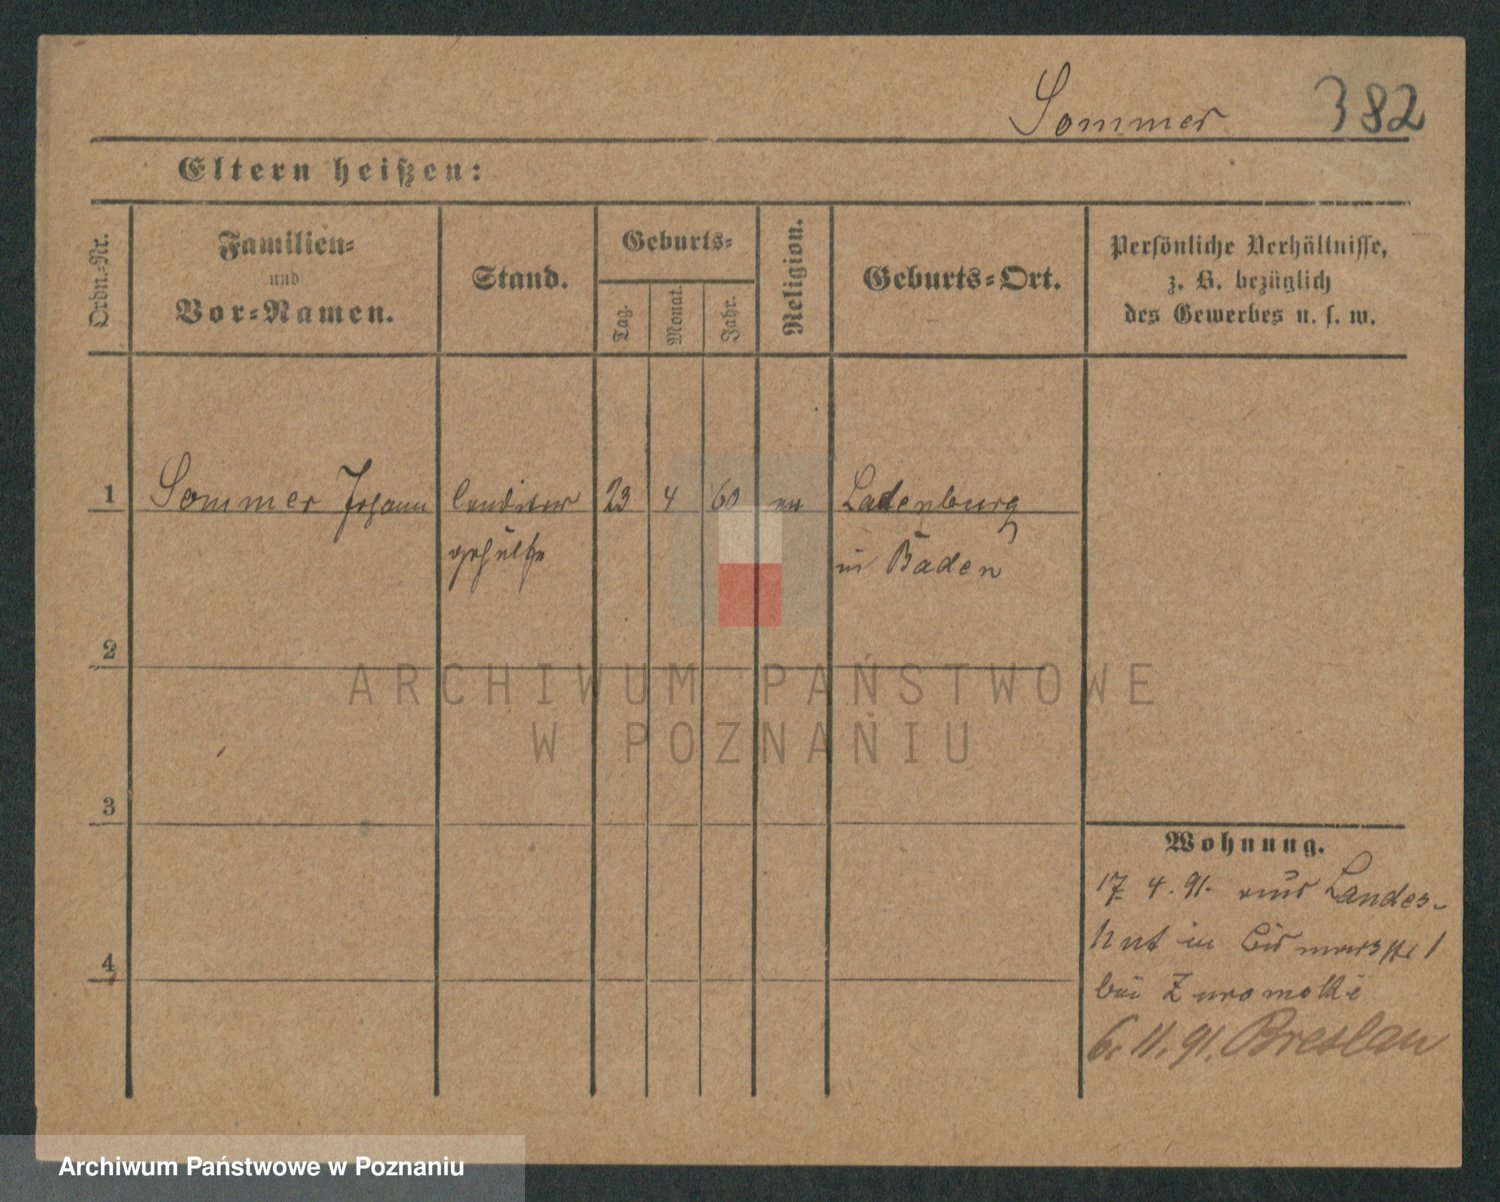 Sommer 382
Eltern heißen:
Ordn.-Nr.
Familien-
und
Vor-Namen.
Stand.
Geburts-
Tag.
Monat.
Jahr.
Religion.
Geburts-Ort.
Persönliche Verhältnisse,
z. B. bezüglich
des Gewerbes u. s. w.
1 Sommer Johann Conditor 23 4 60 Ladenburg
gehülfe in Baden
2
3
4
Wohnung.
17. 4. 91. aus Landes-
hut in
bei
6. 11. 91. Breslau
ARCHIWUM PAŃSTWOWE
W POZNANIU
Archiwum Państwowe w Poznaniu